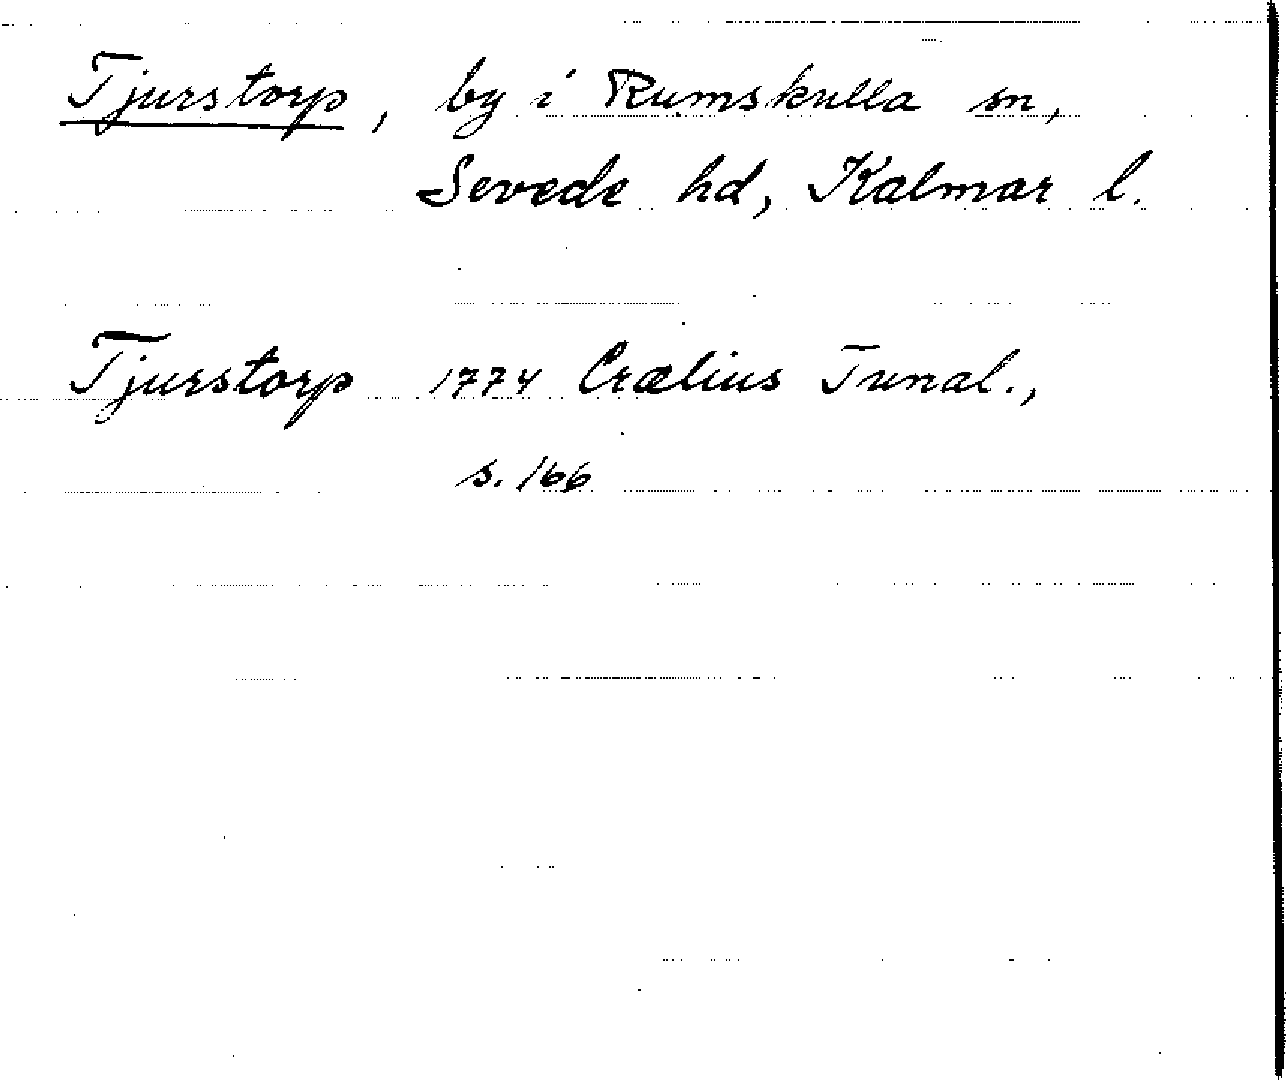 Tjurstorp, by i Rumskulla sn,
Sevede hd, Kalmar l.
Tjurstorp 1774 Crælius Tunal.,
s. 166